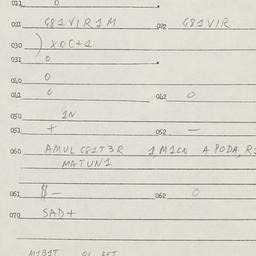 011 0
021 G81VIR1M 022 G81VIR
030 ) XOC+1
031 0
040 0
041 0 042 0
050 1N
051 + 052 —
060 AMUL G81T3R 1 M1CN A PODA, R
MATUN1
061 — 062 0
070 SAD+